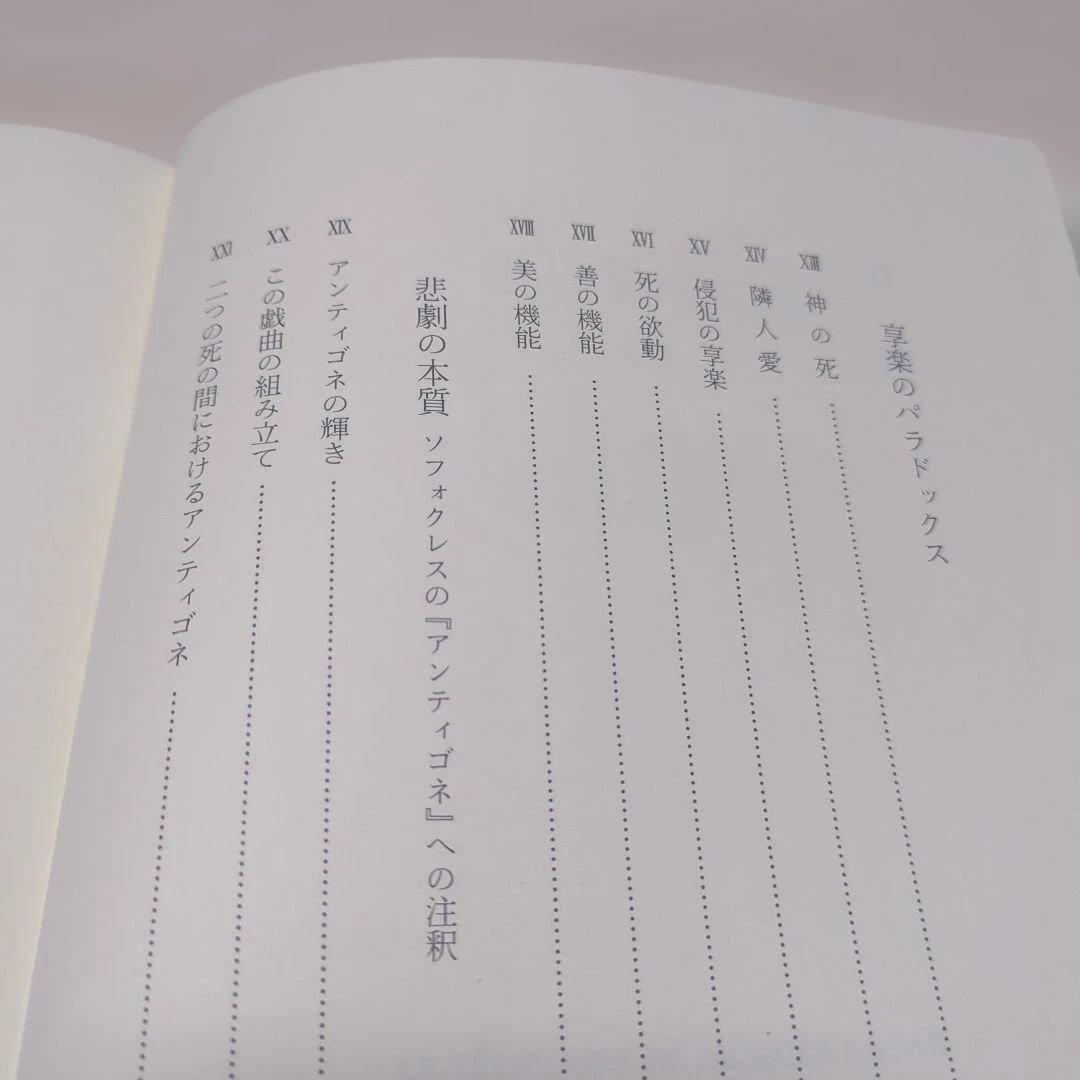 享楽のパラドックス
XIII 神の死
XIV 隣人愛
XV 侵犯の享楽
XVI 死の欲動
XVII 善の機能
XVIII 美の機能
悲劇の本質 ソフォクレスの『アンティゴネ』への注釈
XIX アンティゴネの輝き
XX この戯曲の組み立て
XXI 二つの死の間におけるアンティゴネ